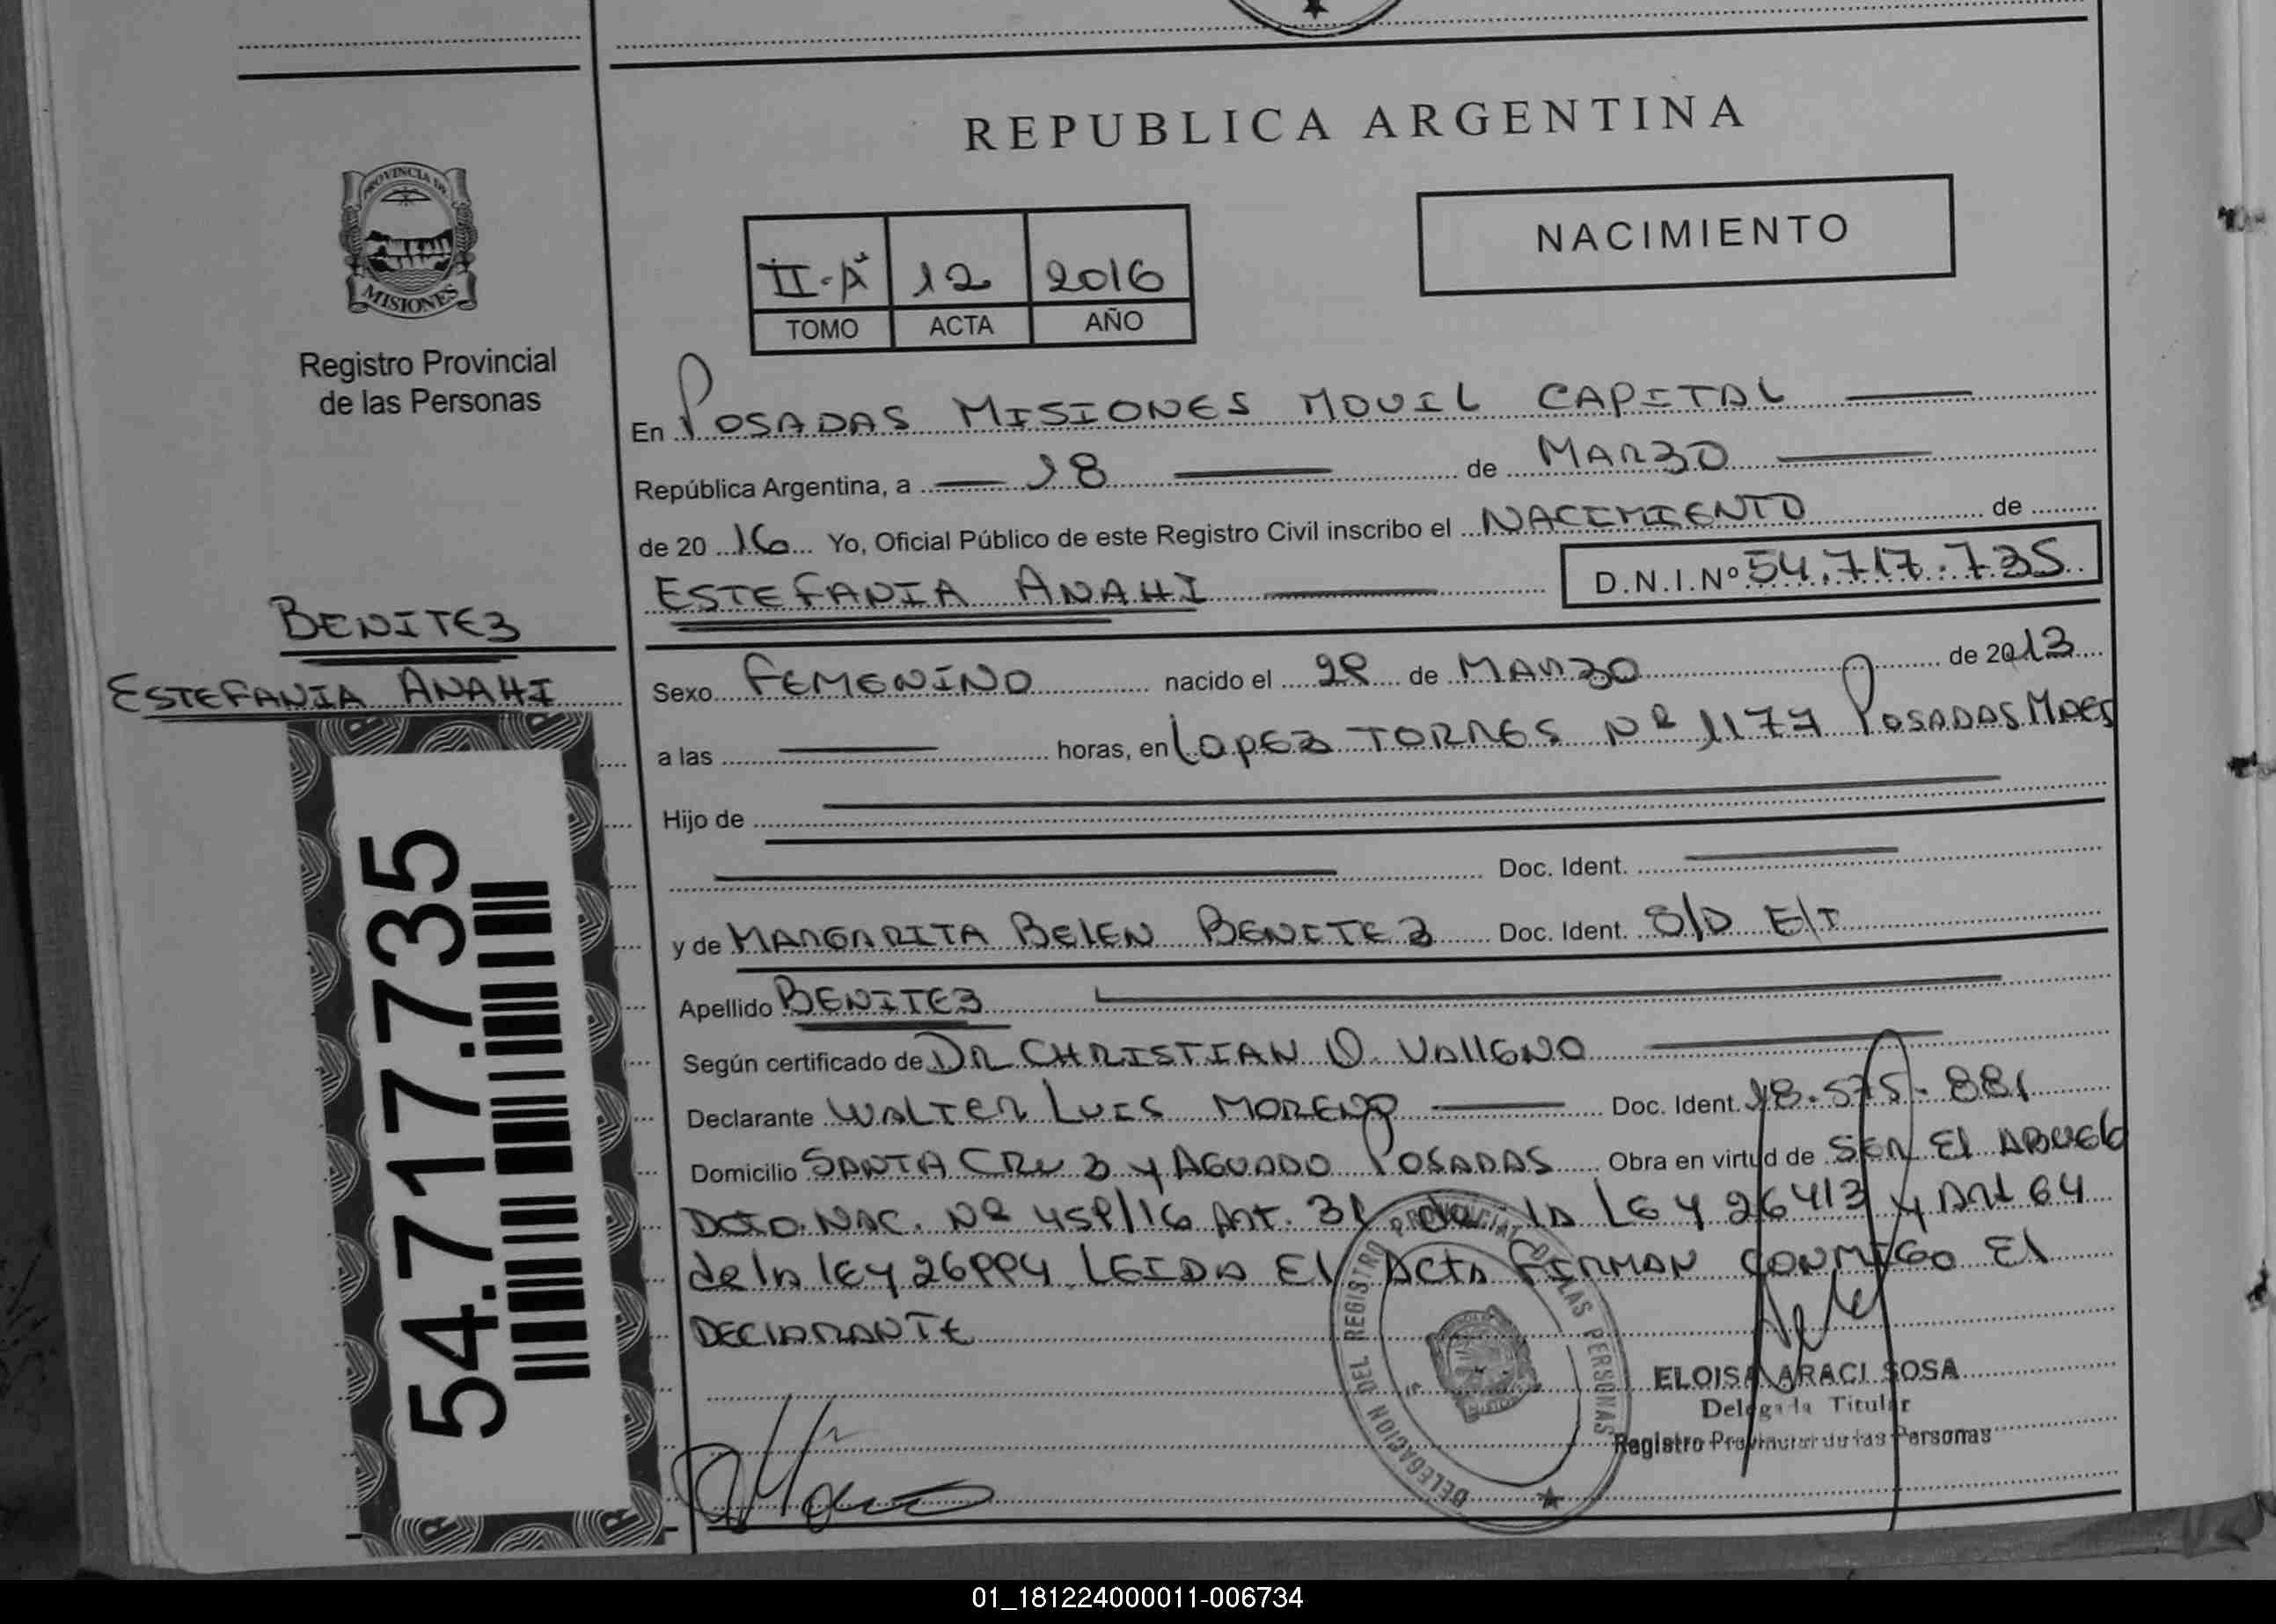 REPUBLICA ARGENTINA
PROVINCIA DE
MISIONES
Registro Provincial
de las Personas
NACIMIENTO
II-A° 12 2016
TOMO ACTA AÑO
En POSADAS MISIONES MOVIL CAPITAL
República Argentina, a 18 de MARZO
de 2016 Yo, Oficial Público de este Registro Civil inscribo el NACIMIENTO de
ESTEFANIA ANAHI D.N.I.Nº 54.717.735
BENITEZ
ESTEFANIA ANAHI
54.717.735
Sexo FEMENINO nacido el 29 de MARZO de 2013
a las horas, en LOPEZ TORRES Nº 1177 POSADAS
Hijo de
Doc. Ident.
y de MARGARITA BELEN BENITEZ Doc. Ident. S/D E/T
Apellido BENITEZ
Según certificado de DR CHRISTIAN O. VALLENO
Declarante WALTER LUIS MORENO Doc. Ident. 18.575.881
Domicilio SANTA CRUZ y AGUADO POSADAS Obra en virtud de SER El ABUELO
DCTO. NAC. Nº 459/16 Art. 31 de la LEY 26413 y Art 64
de la LEY 26994 LEIDA El Acta FIRMAN CONMIGO El
DECLARANTE
DELEGACION DEL REGISTRO PROVINCIAL DE LAS PERSONAS
ELOISA ARACI SOSA
Delegada Titular
Registro Provincial de las Personas
01_181224000011-006734